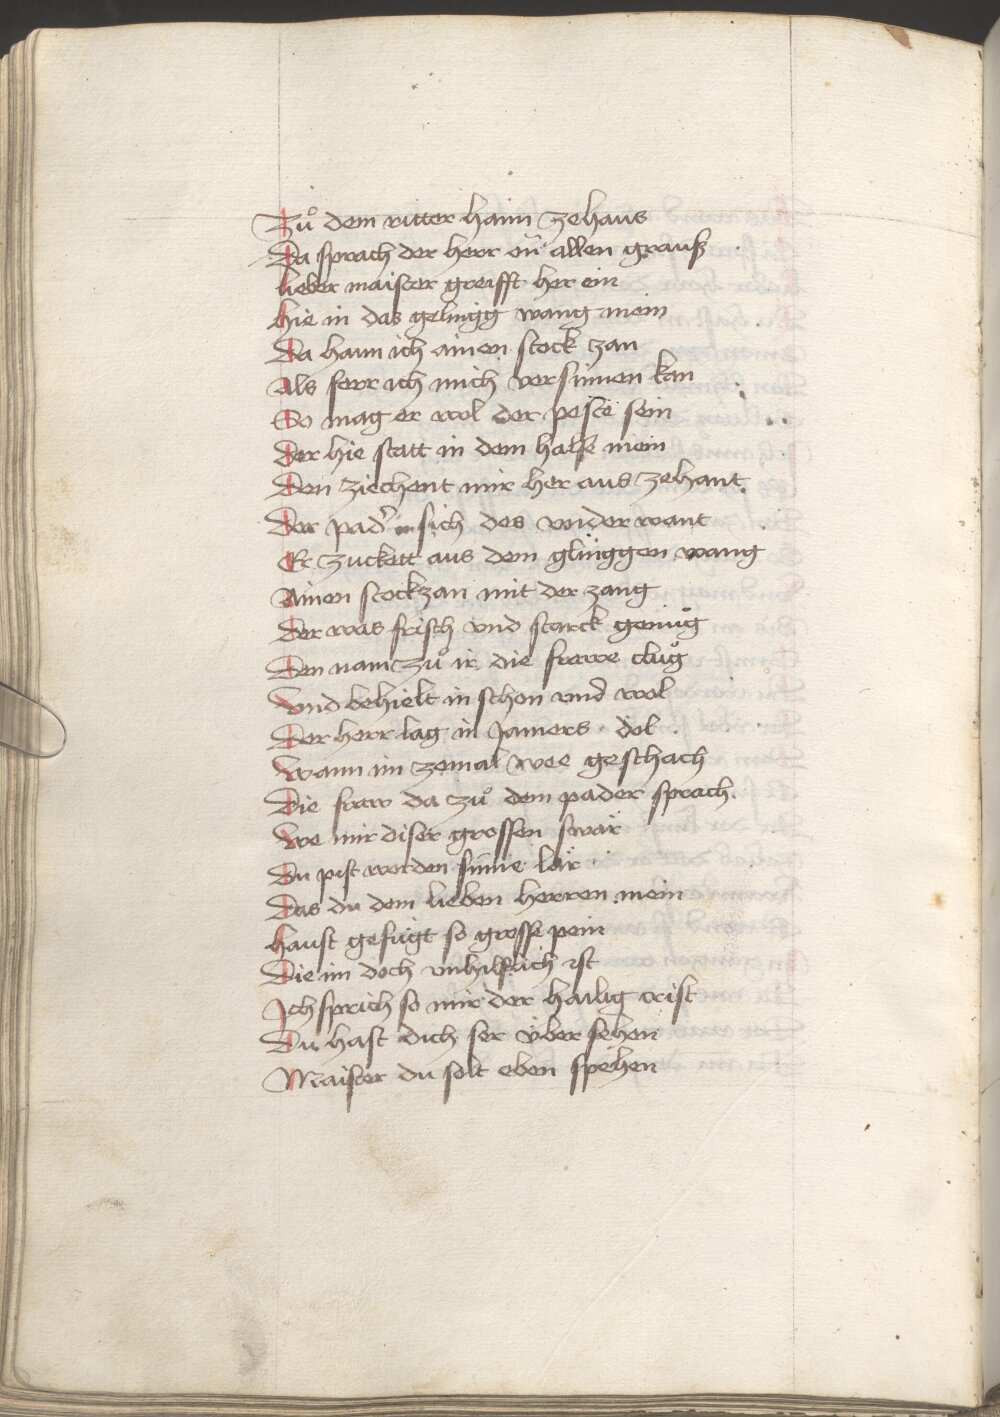 Zů dem ritter haim zehaus
Da sprach der herr on allen grauß
lieber maister greifft her ein
hie in das gelingg wang mein
Da hann ich ainen stock zan
Als ferr ich mich versinnen kan
So mag er wol der pöste sein
Der hie statt in dem halse mein
Den ziechent mir her aus zehant
Der pader sich des vnder want
Er zuckett aus dem glinggen wang
Ainen stockzan mit der zang
Der was frisch vnd starck genůg
Den nam zů ir die frawe clůg
Vnd behielt in schon vnd wol
Der herr lag in Jamers dol
Wann im zemal wee geschach
Die fraw da zů dem pader sprach
We mir diser grossen swär
Du pist worden sinne lär
Das du dem lieben herren mein
Haust gefügt so grosse pein
Die im doch vnhilflich ist
Ich sprich so mir der hailig crist
Du hast dich ser über sehen
Maister du solt eben spehen